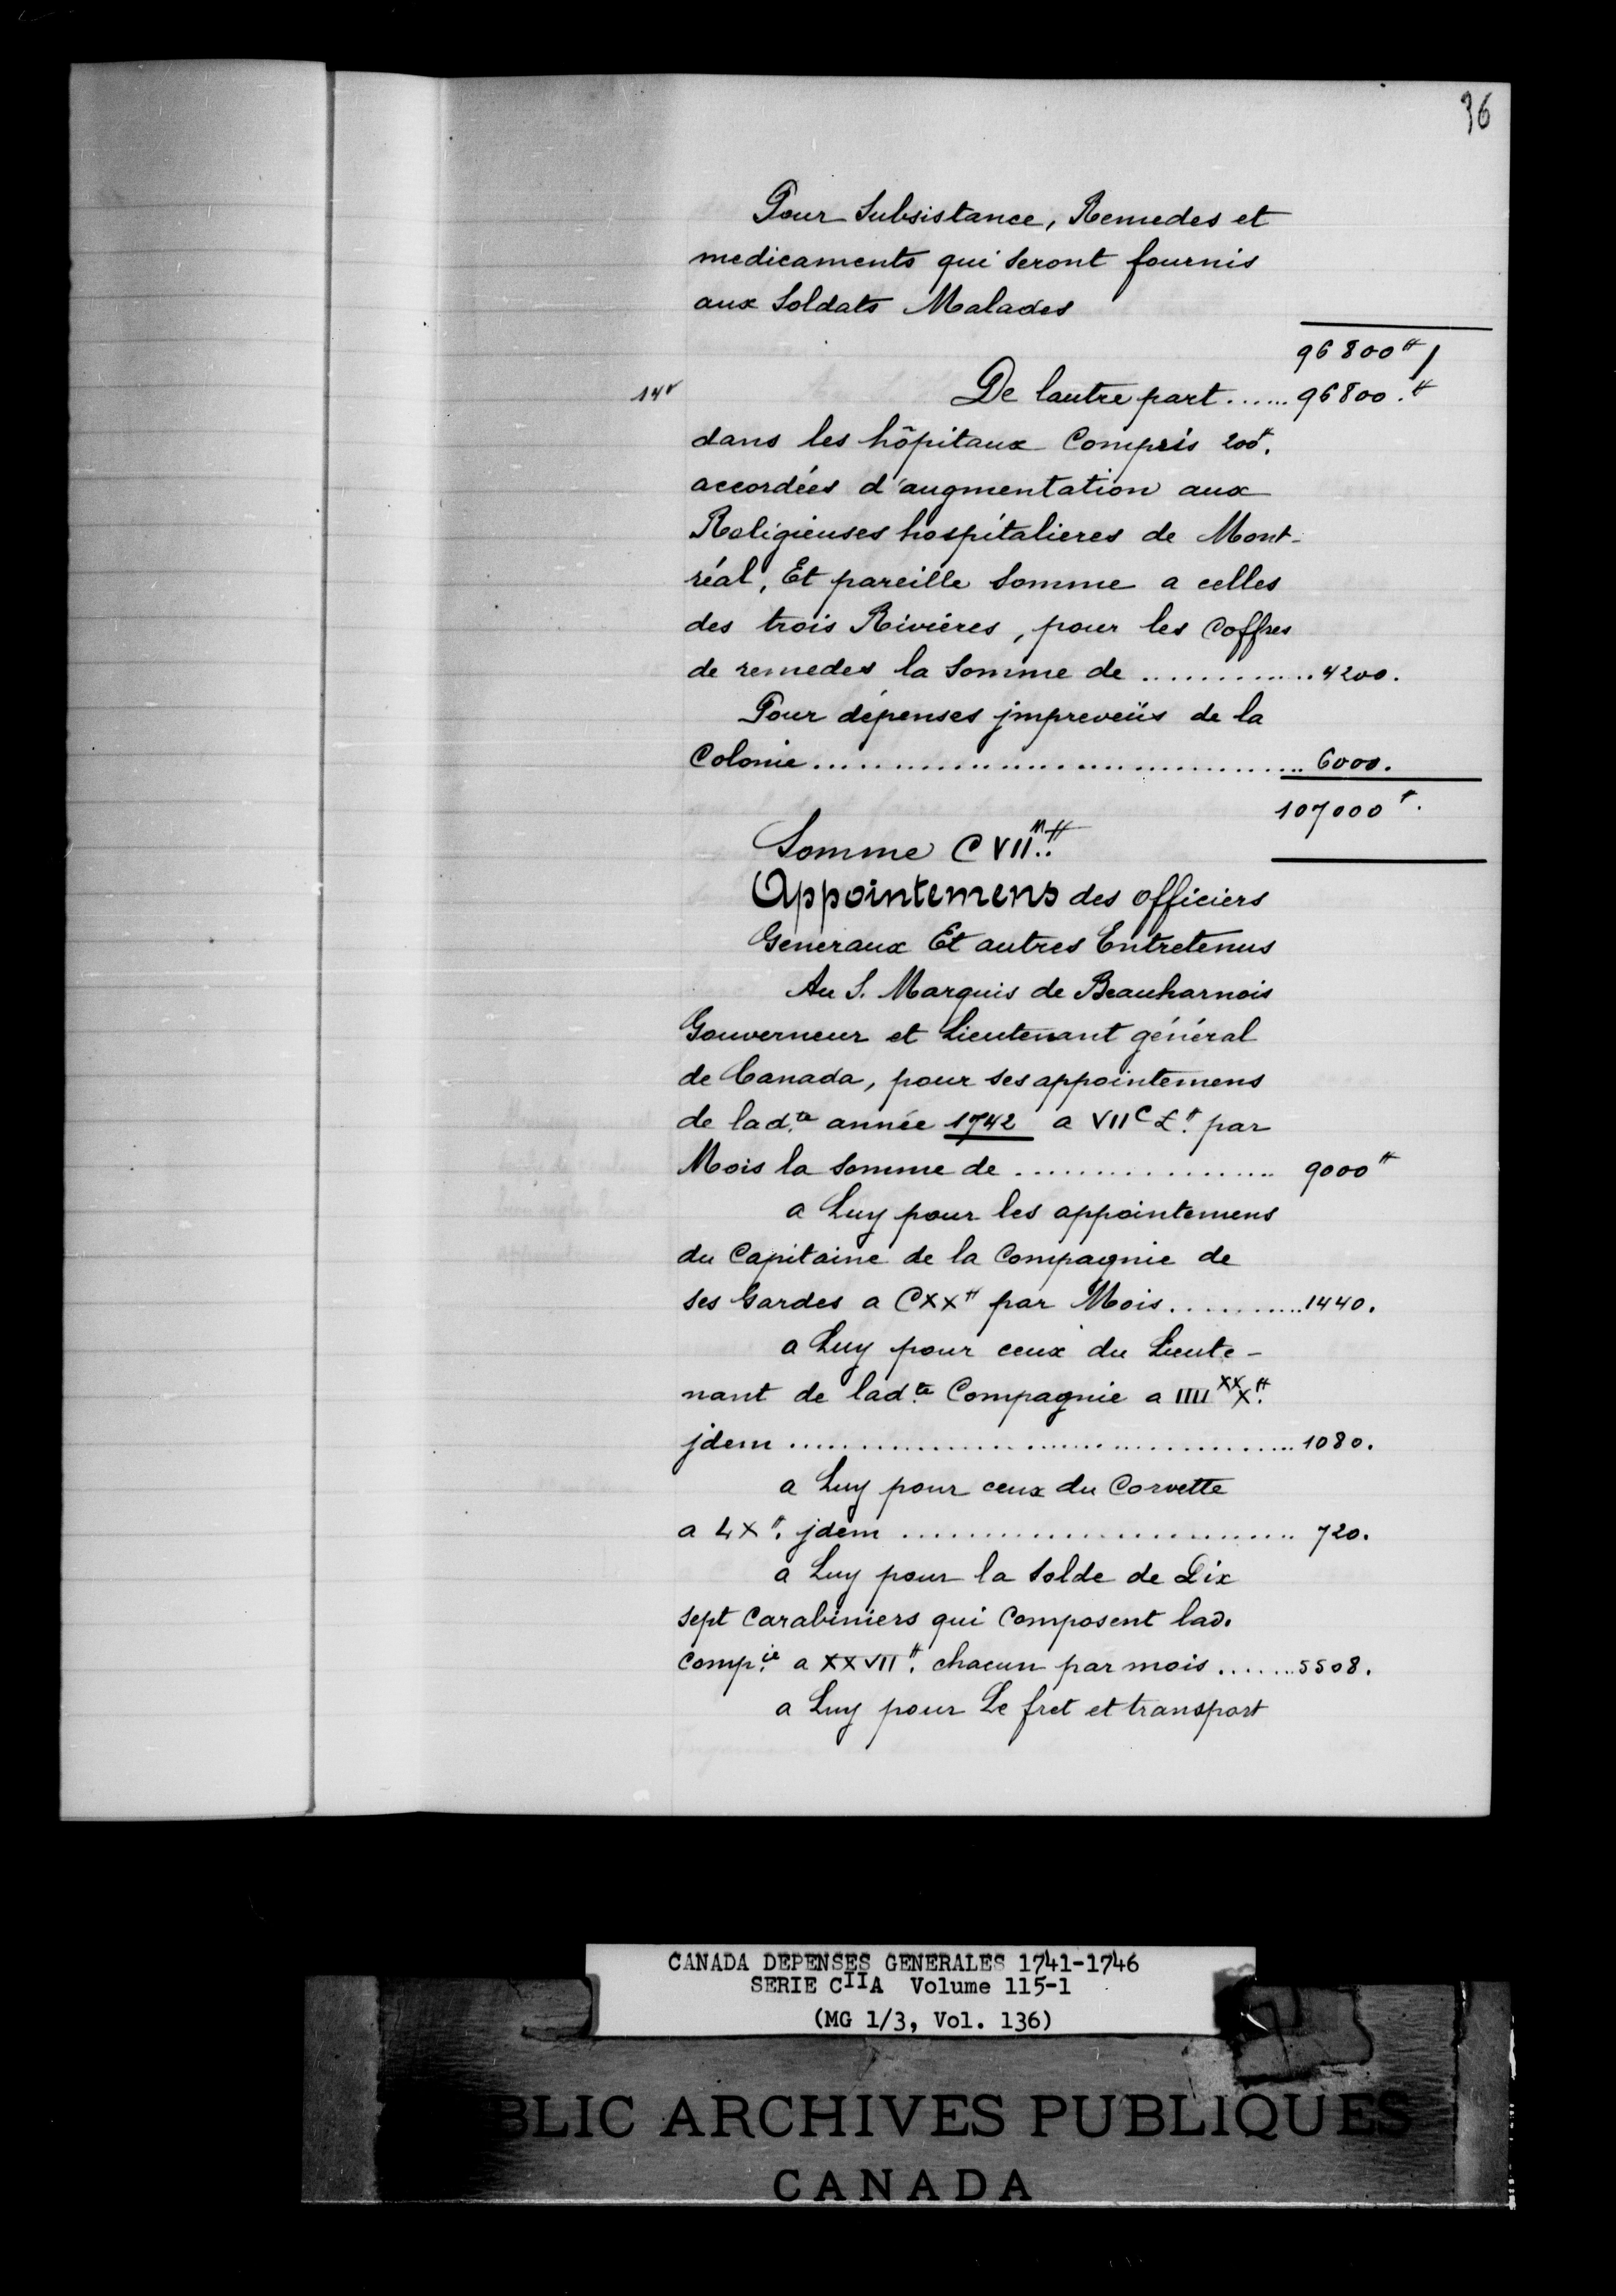 36
Pour Subsistance, Remedes et
medicaments qui seront fournis
aux Soldats Malades
96800ᵗᵗ/
14ᵛ De lautre part ...... 96800.ᵗᵗ
dans les hôpitaux Compris 200ᵗᵗ.
accordées d'augmentation aux
Religieuses hospitalieres de Mont-
réal, Et pareille Somme a celles
des trois Rivières, pour les Coffres
de remedes la Somme de ............. 4200.
Pour dépenses jmpreveüs de la
Colonie ................................ 6000.
107000ᵗᵗ.
Somme C VIIᴹ..ᵗᵗ
Appointemens des officiers
Generaux Et autres Entretenus
Au S. Marquis de Beauharnois
Gouverneur et Lieutenant général
de Canada, pour ses appointemens
de lad.ᵗᵉ année 1742 a VIIᶜ£.ᵗᵗ par
Mois la Somme de .................. 9000ᵗᵗ
a Luy pour les appointemens
du Capitaine de la Compagnie de
ses Gardes a CXXᵗᵗ par Mois .......... 1440.
a Luy pour ceux du Lieute-
nant de lad.ᵗᵉ Compagnie a IIIIˣˣX.ᵗᵗ
jdem .................................... 1080.
a Luy pour ceux du Corvette
a LXᵗᵗ. jdem .......................... 720.
a Luy pour la Solde de Dix
sept Carabiniers qui Composent lad.
Comp.ⁱᵉ a XXVIIᵗᵗ. chacun par mois ....... 5508.
a Luy pour Le fret et transport
CANADA DEPENSES GENERALES 1741-1746
SERIE CIIA Volume 115-1
(MG 1/3, Vol. 136)
BLIC ARCHIVES PUBLIQUES
CANADA